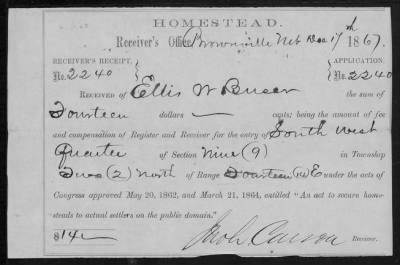 HOMESTEAD.
Receiver's Office, Brownville Neb Dec 17th 1867.
RECEIVER'S RECEIPT, APPLICATION,
No. 2240 No. 2240
RECEIVED OF Ellis W the sum of
Fourteen dollars — cents; being the amount of fee
and compensation of Register and Receiver for the entry of South West
Quarter of Section Nine (9) in Township
Two (2) North of Range Fourteen (14) E under the acts of
Congress approved May 20, 1862, and March 21, 1864, entitled "An act to secure home-
steads to actual settlers on the public domain."
$14— Carson Receiver.